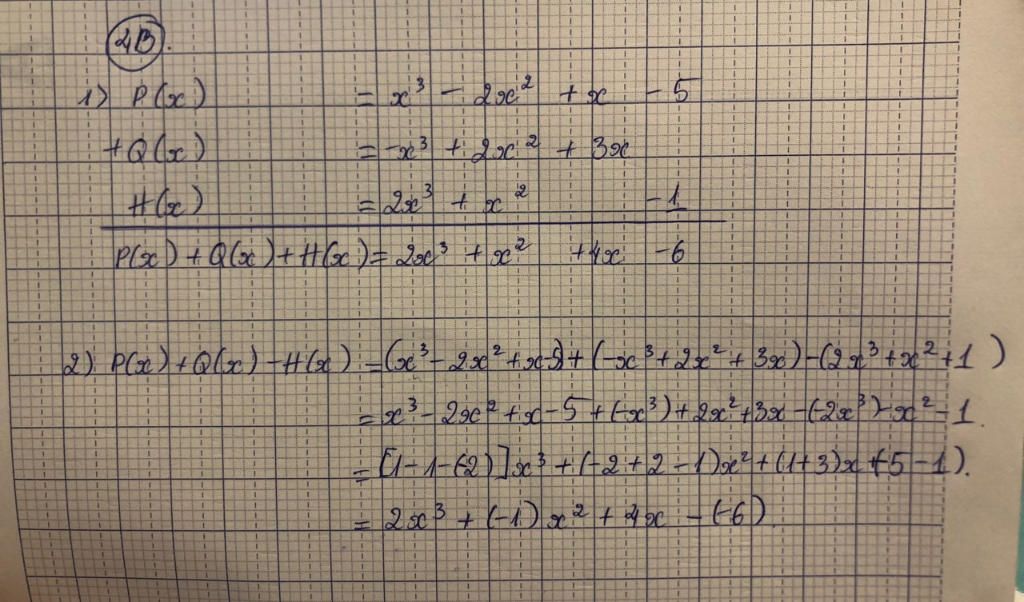 4B.
1) P(x) = x³ - 2x² + x - 5
+Q(x) = -x³ + 2x² + 3x
H(x) = 2x³ + x² - 1
P(x) + Q(x) + H(x) = 2x³ + x² + 4x - 6
2) P(x) + Q(x) - H(x) = (x³ - 2x² + x - 5) + (-x³ + 2x² + 3x) - (2x³ + x² + 1)
= x³ - 2x² + x - 5 + (-x³) + 2x² + 3x - (-2x³) - x² - 1.
= [1 - 1 - (-2)]x³ + (-2 + 2 - 1)x² + (1 + 3)x + (-5 - 1).
= 2x³ + (-1)x² + 4x - (-6).